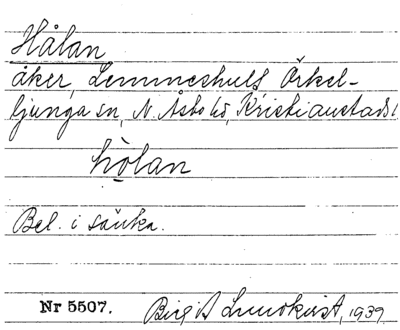 Hålan
åker, Lemmeshult, Örkel-
ljunga sn, N. Åsbo hd, Kristianstads l
hòlan
Bel. i sänka.
Nr 5507.
Birgit Lundkvist, 1939